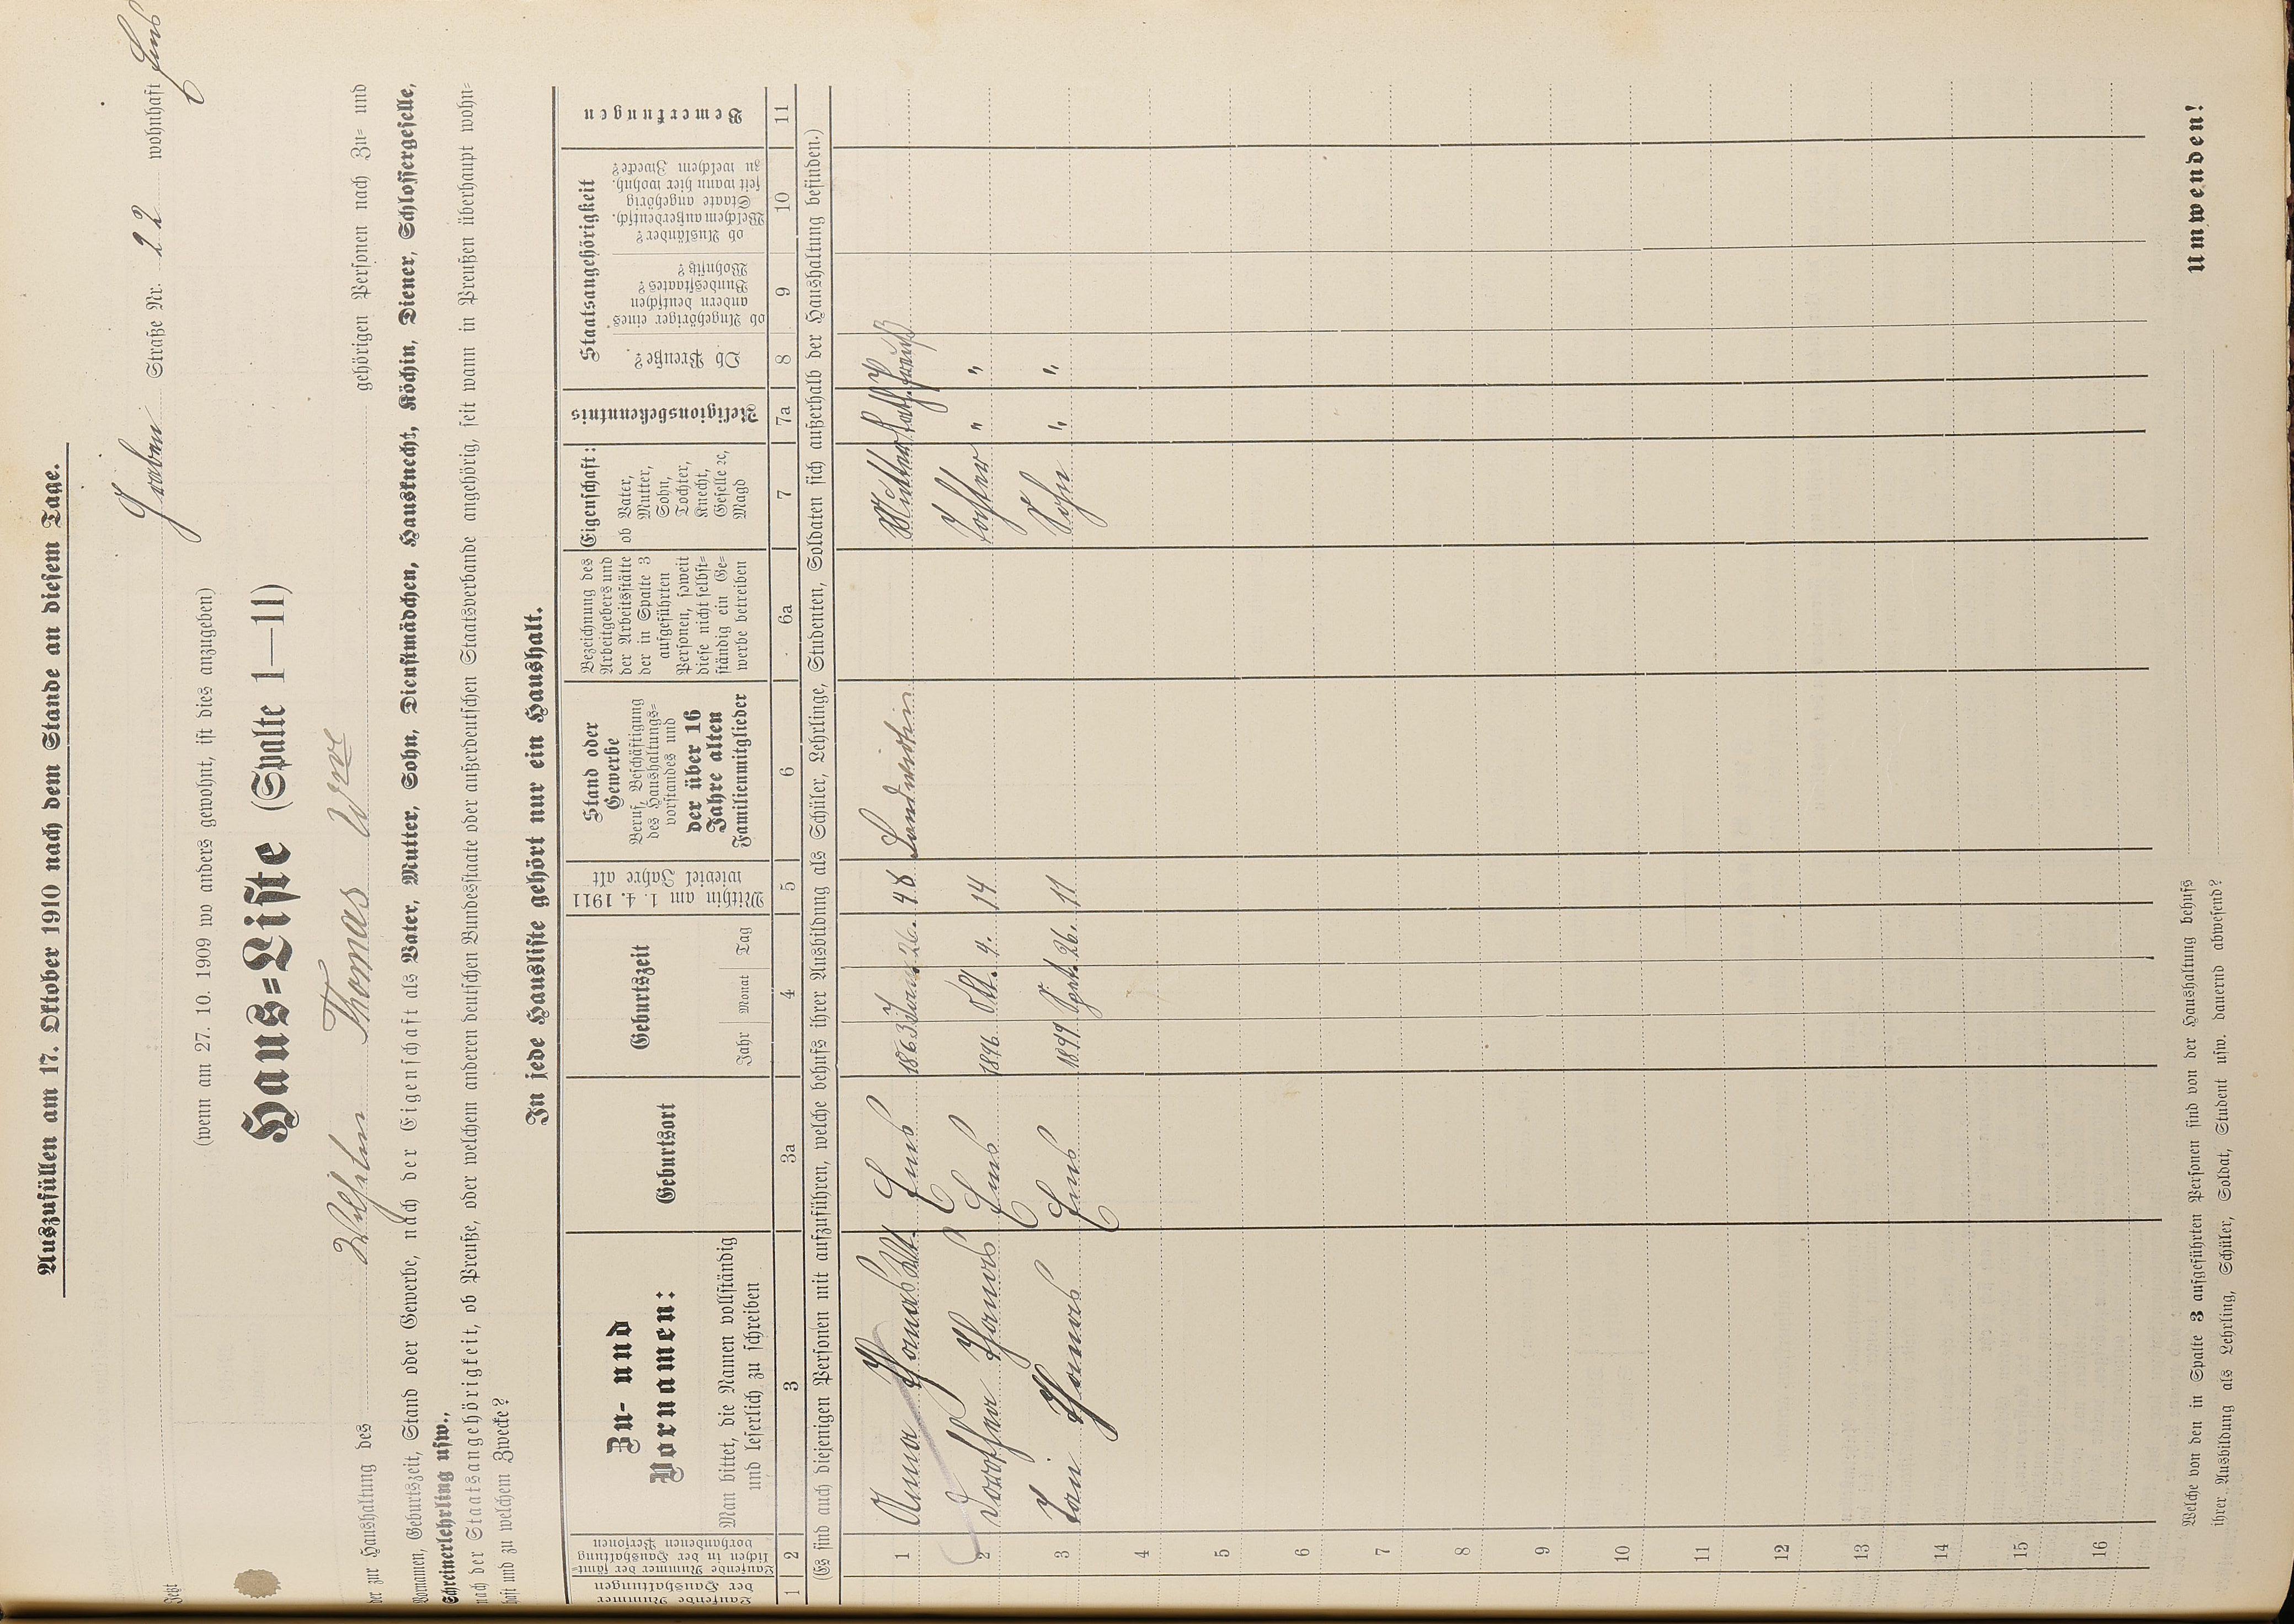 Auszufüllen am 17. Oktober 1910 nach dem Stande an diesem Tage.
Jetzt Graben Straße Nr. 22 wohnhaft Ems
(wenn am 27. 10. 1909 wo anders gewohnt, ist dies anzugeben)
Haus=Liste (Spalte 1—11)
der zur Haushaltung des Wilhelm Thomas Wwe gehörigen Personen nach Zu= und
Vornamen, Geburtszeit, Stand oder Gewerbe, nach der Eigenschaft als Vater, Mutter, Sohn, Dienstmädchen, Hausknecht, Köchin, Diener, Schlossergeselle,
Schreinerlehrling usw.,
nach der Staatsangehörigkeit, ob Preuße, oder welchem anderen deutschen Bundesstaate oder außerdeutschen Staatsverbande angehörig, seit wann in Preußen überhaupt wohn=
haft und zu welchem Zwecke?
In jede Hausliste gehört nur ein Haushalt.
Laufende Nummer
der Haushaltungen
Laufende Nummer der sämt=
lichen in der Haushaltung
vorhandenen Personen
Zu- und
Vornamen:
Man bittet, die Namen vollständig
und leserlich zu schreiben
Geburtsort
Geburtszeit
Jahr Monat Tag
Mithin am 1. 4. 1911
wieviel Jahre alt
Stand oder
Gewerbe
Beruf, Beschäftigung
des Haushaltungs=
vorstandes und
der über 16
Jahre alten
Familienmitglieder
Bezeichnung des
Arbeitgebers und
der Arbeitsstätte
der in Spalte 3
aufgeführten
Personen, soweit
diese nicht selbst=
ständig ein Ge=
werbe betreiben
Eigenschaft:
ob Vater,
Mutter,
Sohn,
Tochter,
Knecht,
Geselle ꝛc,
Magd
Religionsbekenntnis
Staatsangehörigkeit
Ob Preuße?
ob Angehöriger eines
andern deutschen
Bundesstaates?
Wohnsitz?
ob Ausländer?
Welchem außerdeutsch.
Staate angehörig
seit wann hier wohnh.
zu welchem Zwecke?
Bemerkungen
1 2 3 3a 4 5 6 6a 7 7a 8 9 10 11
(Es sind auch diejenigen Personen mit aufzuführen, welche behufs ihrer Ausbildung als Schüler, Lehrlinge, Studenten, Soldaten sich außerhalb der Haushaltung befinden.)
1 Anna Thomas Ems 1863 26. 48 Landwirtin Mutter kath. Preuß
2 Dorothea Thomas Ems 1896 Okt. 4. 14 Tochter " "
3 Thomas Ems 1899 Sept. 26. 11 Sohn " "
4
5
6
7
8
9
10
11
12
13
14
15
16
Welche von den in Spalte 3 aufgeführten Personen sind von der Haushaltung behufs
ihrer Ausbildung als Lehrling, Schüler, Soldat, Student usw. dauernd abwesend?
umwenden!